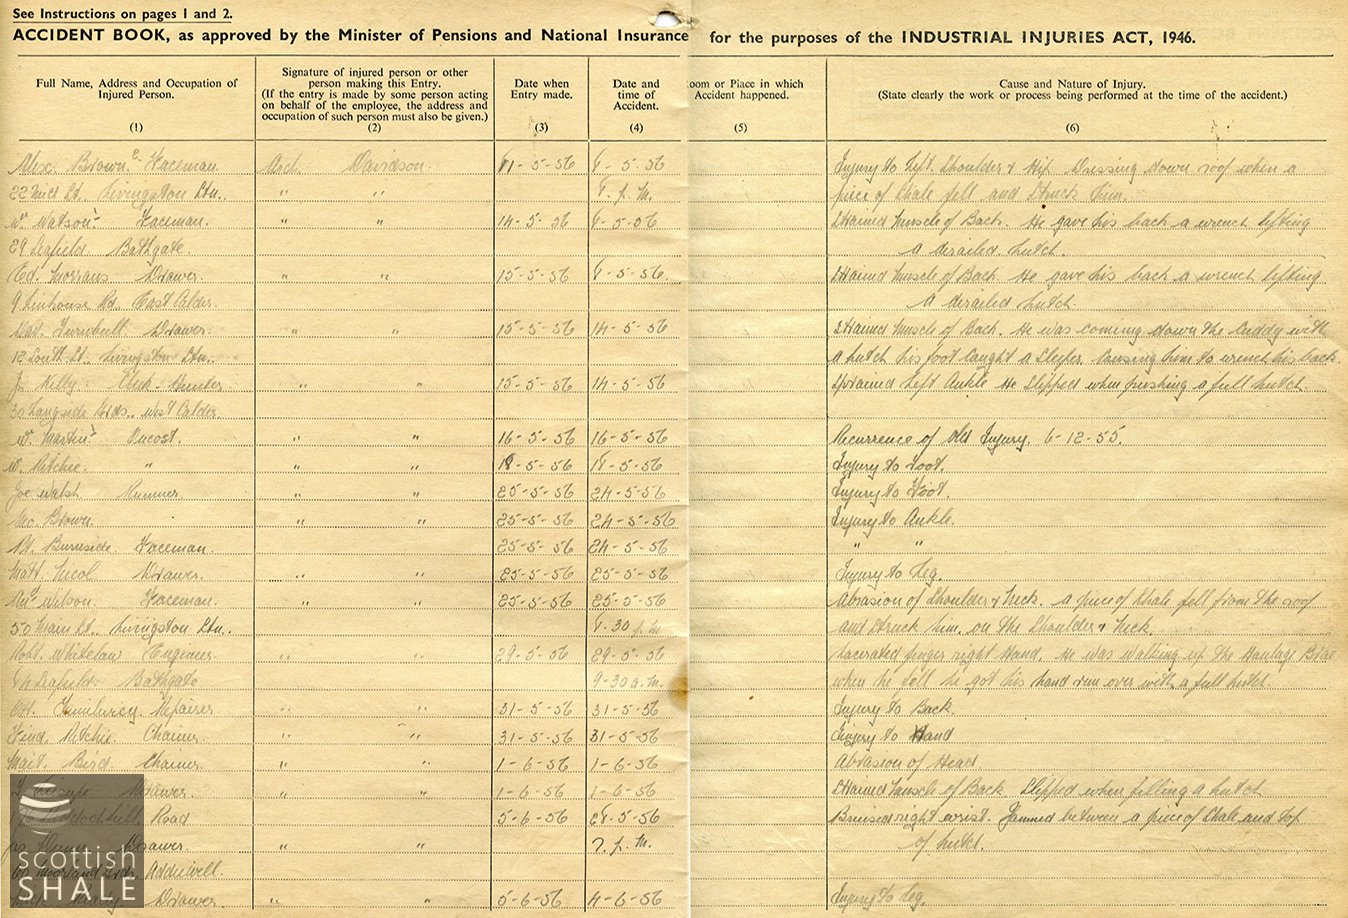 See Instructions on pages 1 and 2.
ACCIDENT BOOK, as approved by the Minister of Pensions and National Insurance for the purposes of the INDUSTRIAL INJURIES ACT, 1946.
Full Name, Address and Occupation of Injured Person. (1)
Signature of injured person or other person making this Entry. (If the entry is made by some person acting on behalf of the employee, the address and occupation of such person must also be given.) (2)
Date when Entry made. (3)
Date and time of Accident. (4)
oom or Place in which Accident happened. (5)
Cause and Nature of Injury. (State clearly the work or process being performed at the time of the accident.) (6)
Alex. Brown Faceman Arch. Davidson 11-5-56 -5-56 Injury to Left Shoulder & Hip Dressing Down roof when a
22 St. Livingston Stn. " " p.m. piece of Shale fell and Struck him.
Wm Watson Faceman. " " 14-5-56 -5-56 Strained Muscle of Back. He gave his back a wrench lifting
29 Seafield Bathgate. a derailed hutch.
Ed. Morrans Drawer. " " 15-5-56 -5-56. Strained Muscle of Back. He gave his back a wrench lifting
9 Rd. East Calder. a derailed hutch.
Turnbull Drawer. " " 15-5-56 14-5-56 Strained Muscle of Back. He was coming down the Cuddy with
12 South St. Livingston Stn. a hutch his foot Caught a Sleeper. Causing him to wrench his back.
J. Kelly " " 15-5-56 14-5-56 Sprained Left Ankle He Slipped when pushing a full hutch.
30 Langside Gds. West Calder.
W. Martin Oncost. " " 16-5-56 16-5-56 Recurrence of Old Injury. 6-12-55.
W. Ritchie. " " " -5-56 -5-56 Injury to Foot.
Joe Walsh Runner " " 25-5-56 24-5-56 Injury to Foot.
Geo. Brown. " " 25-5-56 24-5-56 Injury to Ankle.
Burnside. Faceman. " " 25-5-56 24-5-56 " "
Matt. Nicol Drawer. " " 25-5-56 25-5-56 Injury to Leg.
Wilson. Faceman. " " 25-5-56 25-5-56 Abrasion of Shoulder & Neck. a piece of Shale fell from the roof
50 Main St. Livingston Stn. -30 p.m. and Struck him. on the Shoulder & Neck.
Robt. Whitelaw Engineer " " 29-5-56 29-5-56 Lacerated finger right Hand. He was walking up the Haulage Brae
Seafield Bathgate 9-30 a.m. when he fell he got his hand run over with a full hutch.
Repairer " " 31-5-56 31-5-56 Injury to Back.
Ritchie. Chainer " " 31-5-56 31-5-56 Injury to Hand
Bird. Chainer. " " 1-6-56 1-6-56 Abrasion of Head.
Drawer. " " 1-6-56 1-6-56 Strained Muscle of Back. Slipped when filling a hutch
Road 5-6-56 -5-56 Bruised right wrist. Jammed between a piece of Shale and top
Drawer. " " 7. p.m. of hutch.
Addiewell
Drawer. " " 5-6-56 4-6-56 Injury to Leg.
scottish
SHALE